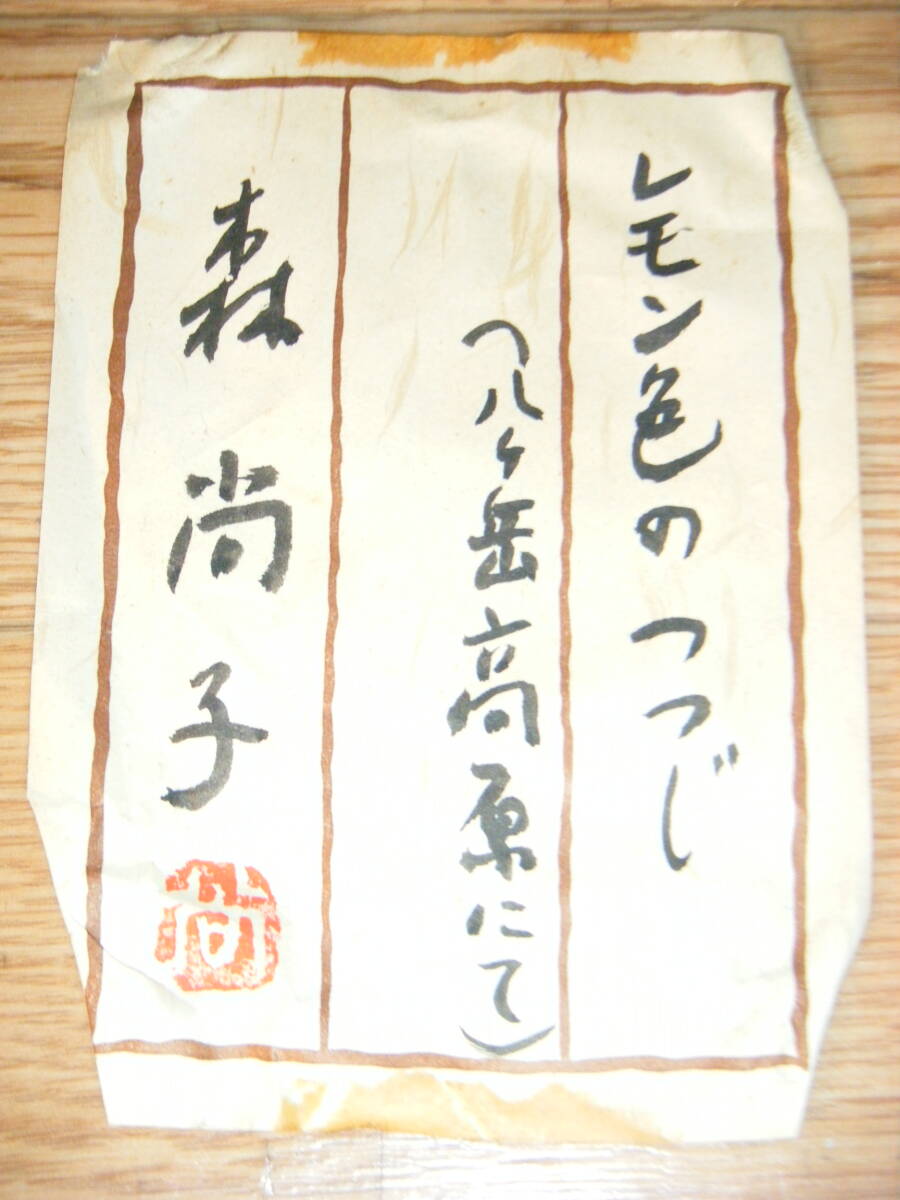 レモン色のつつじ
（八ヶ岳高原にて）
森尚子
尚